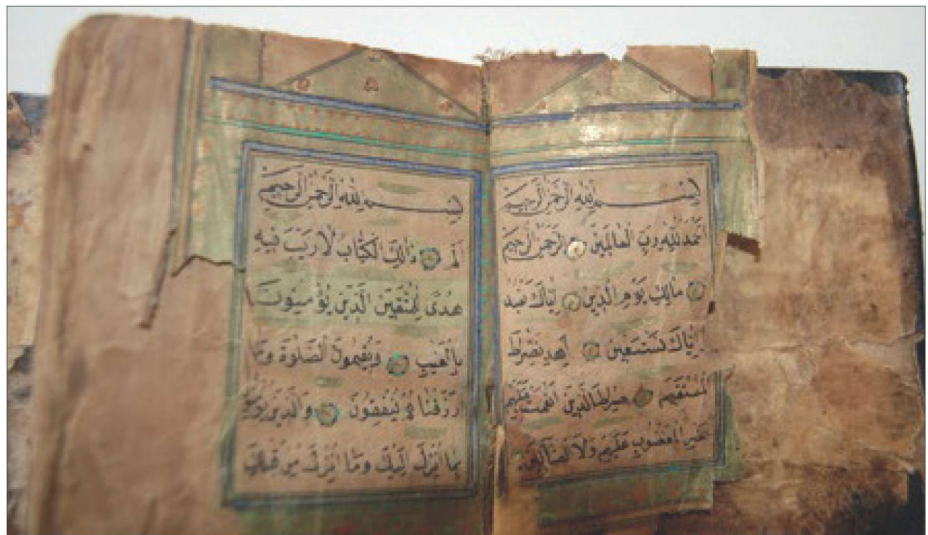 بسم الله الرحمن الرحيم
الحمد لله رب العالمين الرحمن الرحيم
مالك يوم الدين إياك نعبد
وإياك نستعين اهدنا الصراط
المستقيم صراط الذين أنعمت عليهم
غير المغضوب عليهم ولا الضالين
بسم الله الرحمن الرحيم
الم ذلك الكتاب لا ريب فيه
هدى للمتقين الذين يؤمنون
بالغيب ويقيمون الصلوة ومما
رزقناهم ينفقون والذين يؤمنون
بما أنزل إليك وما أنزل من قبلك